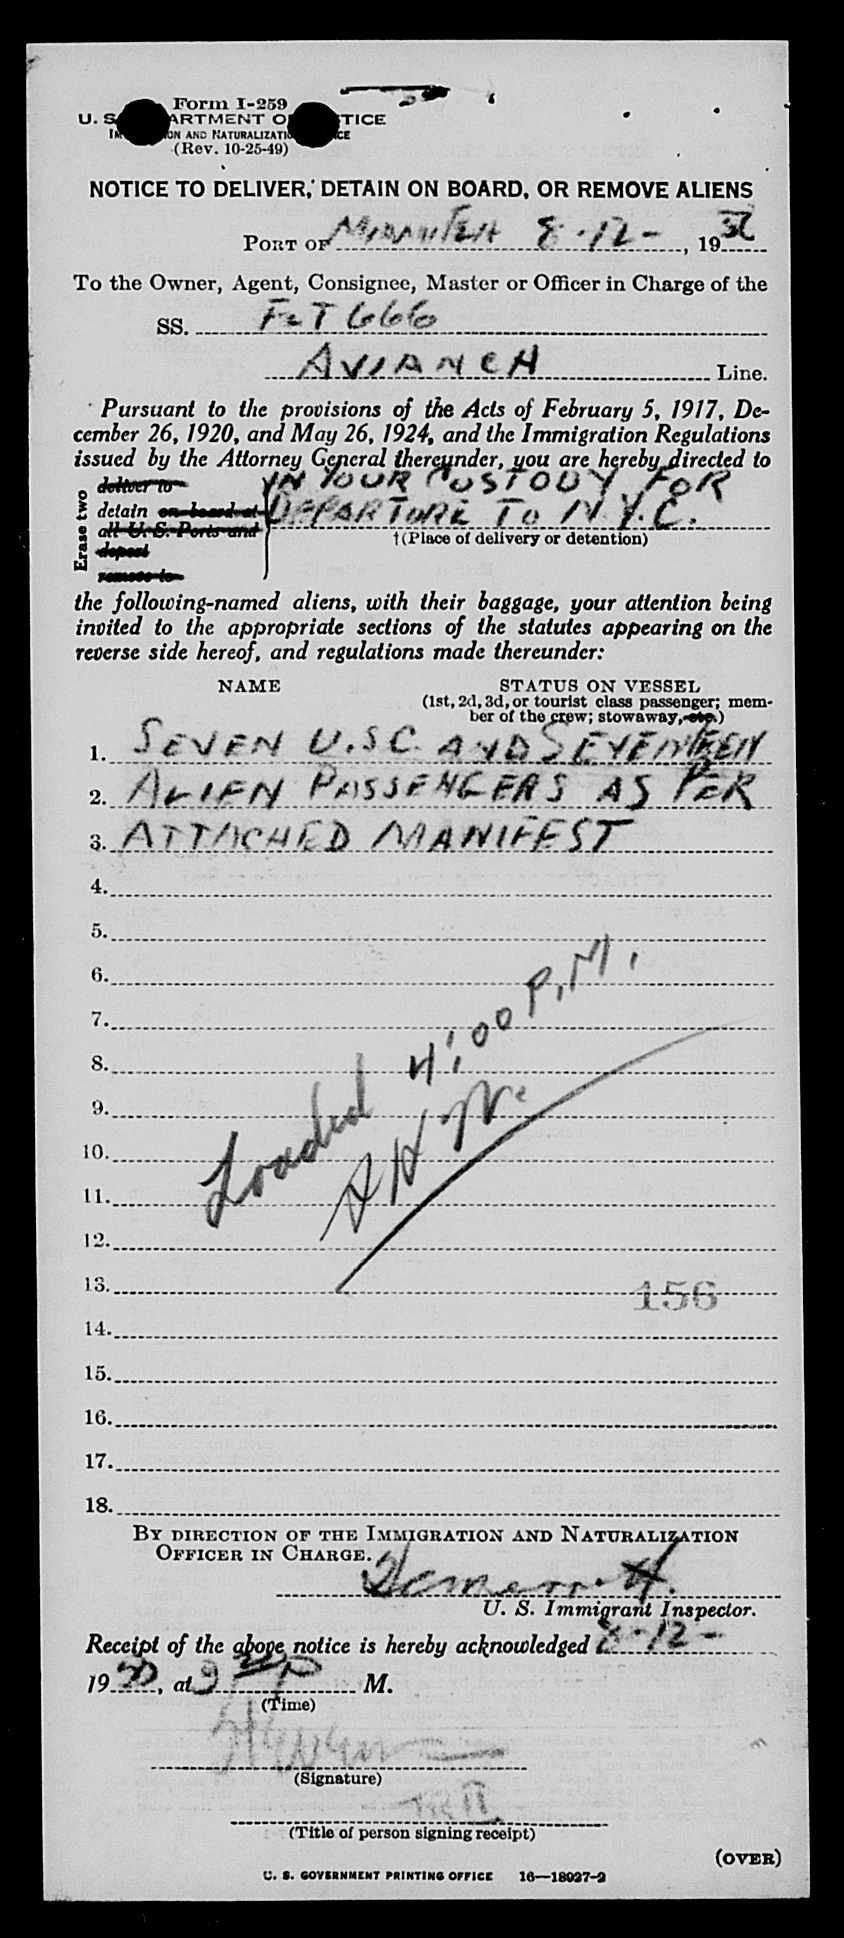 Form I-259
U. S. ARTMENT O TICE
ON AND NATURALIZATI CE
(Rev. 10-25-49)
NOTICE TO DELIVER, DETAIN ON BOARD, OR REMOVE ALIENS
PORT OF 8-12-, 19
To the Owner, Agent, Consignee, Master or Officer in Charge of the
SS. FLT 666
AVIANCA Line.
Pursuant to the provisions of the Acts of February 5, 1917, De-
cember 26, 1920, and May 26, 1924, and the Immigration Regulations
issued by the Attorney General thereunder, you are hereby directed to
Erase two
deliver to
detain on board at
all U. S. Ports and
deport
remove to
IN YOUR CUSTODY FOR
DEPARTURE TO N.Y.C.
†(Place of delivery or detention)
the following-named aliens, with their baggage, your attention being
invited to the appropriate sections of the statutes appearing on the
reverse side hereof, and regulations made thereunder:
NAME STATUS ON VESSEL
(1st, 2d, 3d, or tourist class passenger; mem-
ber of the crew; stowaway, etc.)
1. SEVEN U.S.C. AND SEVENTEEN
2. ALIEN PASSENGERS AS PER
3. ATTACHED MANIFEST
4.
5.
6.
7.
8.
9.
10.
11.
12.
13.
14.
15.
16.
17.
18.
Loaded 4:00 P.M.
156
BY DIRECTION OF THE IMMIGRATION AND NATURALIZATION
OFFICER IN CHARGE.
U. S. Immigrant Inspector.
Receipt of the above notice is hereby acknowledged 8-12-
19, at M.
(Time)
(Signature)
(Title of person signing receipt)
(OVER)
U. S. GOVERNMENT PRINTING OFFICE 16—18927-2